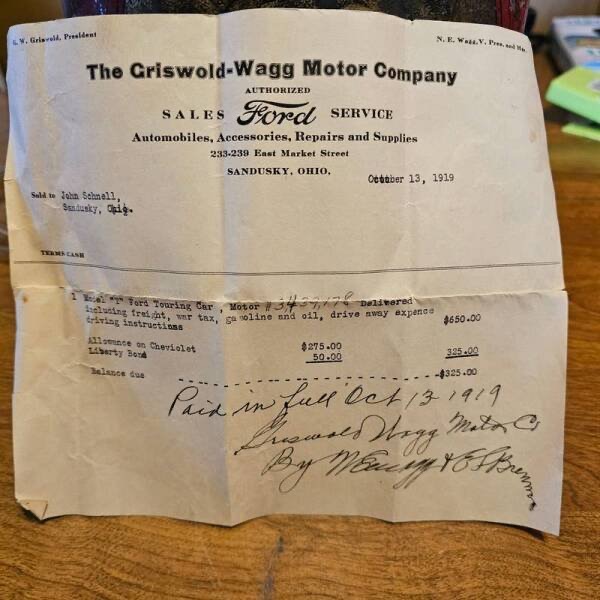 G. W. Griswold, President
N. E. Wagg, V. Pres. and Mgr.
The Griswold-Wagg Motor Company
AUTHORIZED
SALES Ford SERVICE
Automobiles, Accessories, Repairs and Supplies
233-239 East Market Street
SANDUSKY, OHIO.
October 13, 1919
Sold to John Schnell,
Sandusky, Ohio.
TERMS CASH
1 Model "T" Ford Touring Car , Motor # 3439,178 Delivered
including freight, war tax, gasoline and oil, drive away expence
driving instructions $650.00
Allowance on Cheviolet $275.00
Liberty Bond 50.00 325.00
Balance due - - - - - - - - - - - - - - - - -$325.00
Paid in full Oct 13 1919
Griswold Wagg Motor Co
By